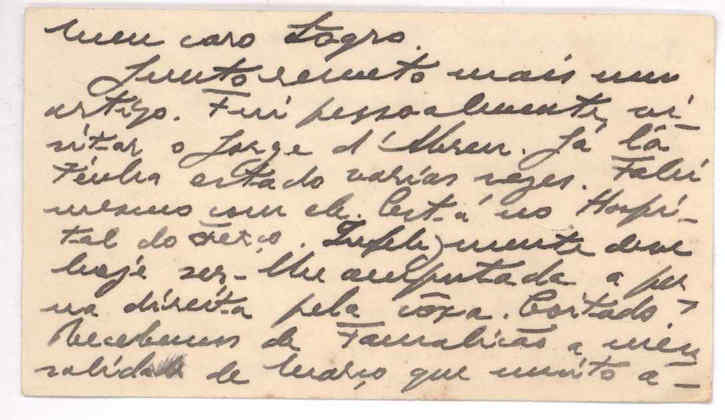 Meu caro Logro.
Junto remeto mais um
artigo. Fui pessoalmente vi-
sitar o Jorge d'Abreu. Já lá
tinha estado varias vezes. Falei
mesmo com ele. Está no Hospi-
tal do Terço. Infelizmente deve
hoje ser-lhe amputada a per
na direita pela coxa. Coitado!
Recebemos de Famalicão a men
salidade de Março que muito a-